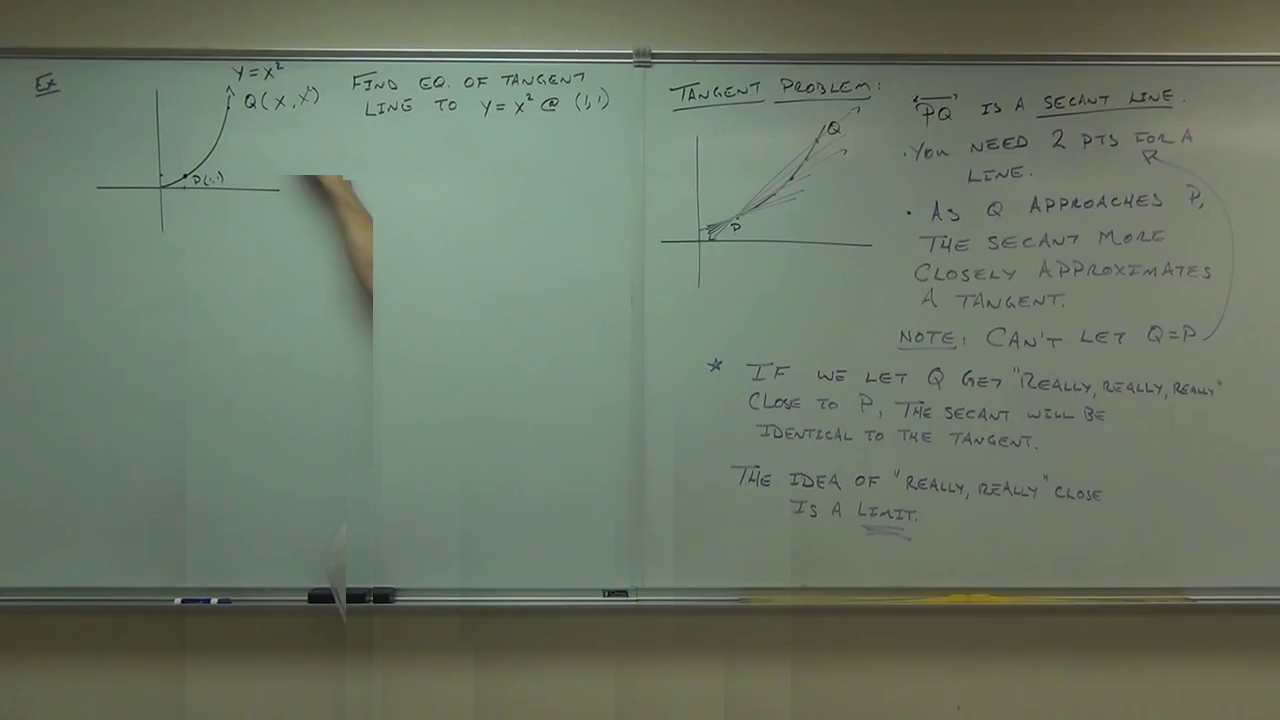 Ex
Y = X²
Q(X, X²)
P(1,1)
FIND EQ. OF TANGENT
LINE TO Y = X² @ (1,1)
TANGENT PROBLEM:
Q
P
"PQ" IS A SECANT LINE.
· YOU NEED 2 PTS FOR A
LINE.
· AS Q APPROACHES P,
THE SECANT MORE
CLOSELY APPROXIMATES
A TANGENT.
NOTE: CAN'T LET Q=P
* IF WE LET Q GET "REALLY, REALLY, REALLY"
CLOSE TO P, THE SECANT WILL BE
IDENTICAL TO THE TANGENT.
THE IDEA OF "REALLY, REALLY" CLOSE
IS A LIMIT.